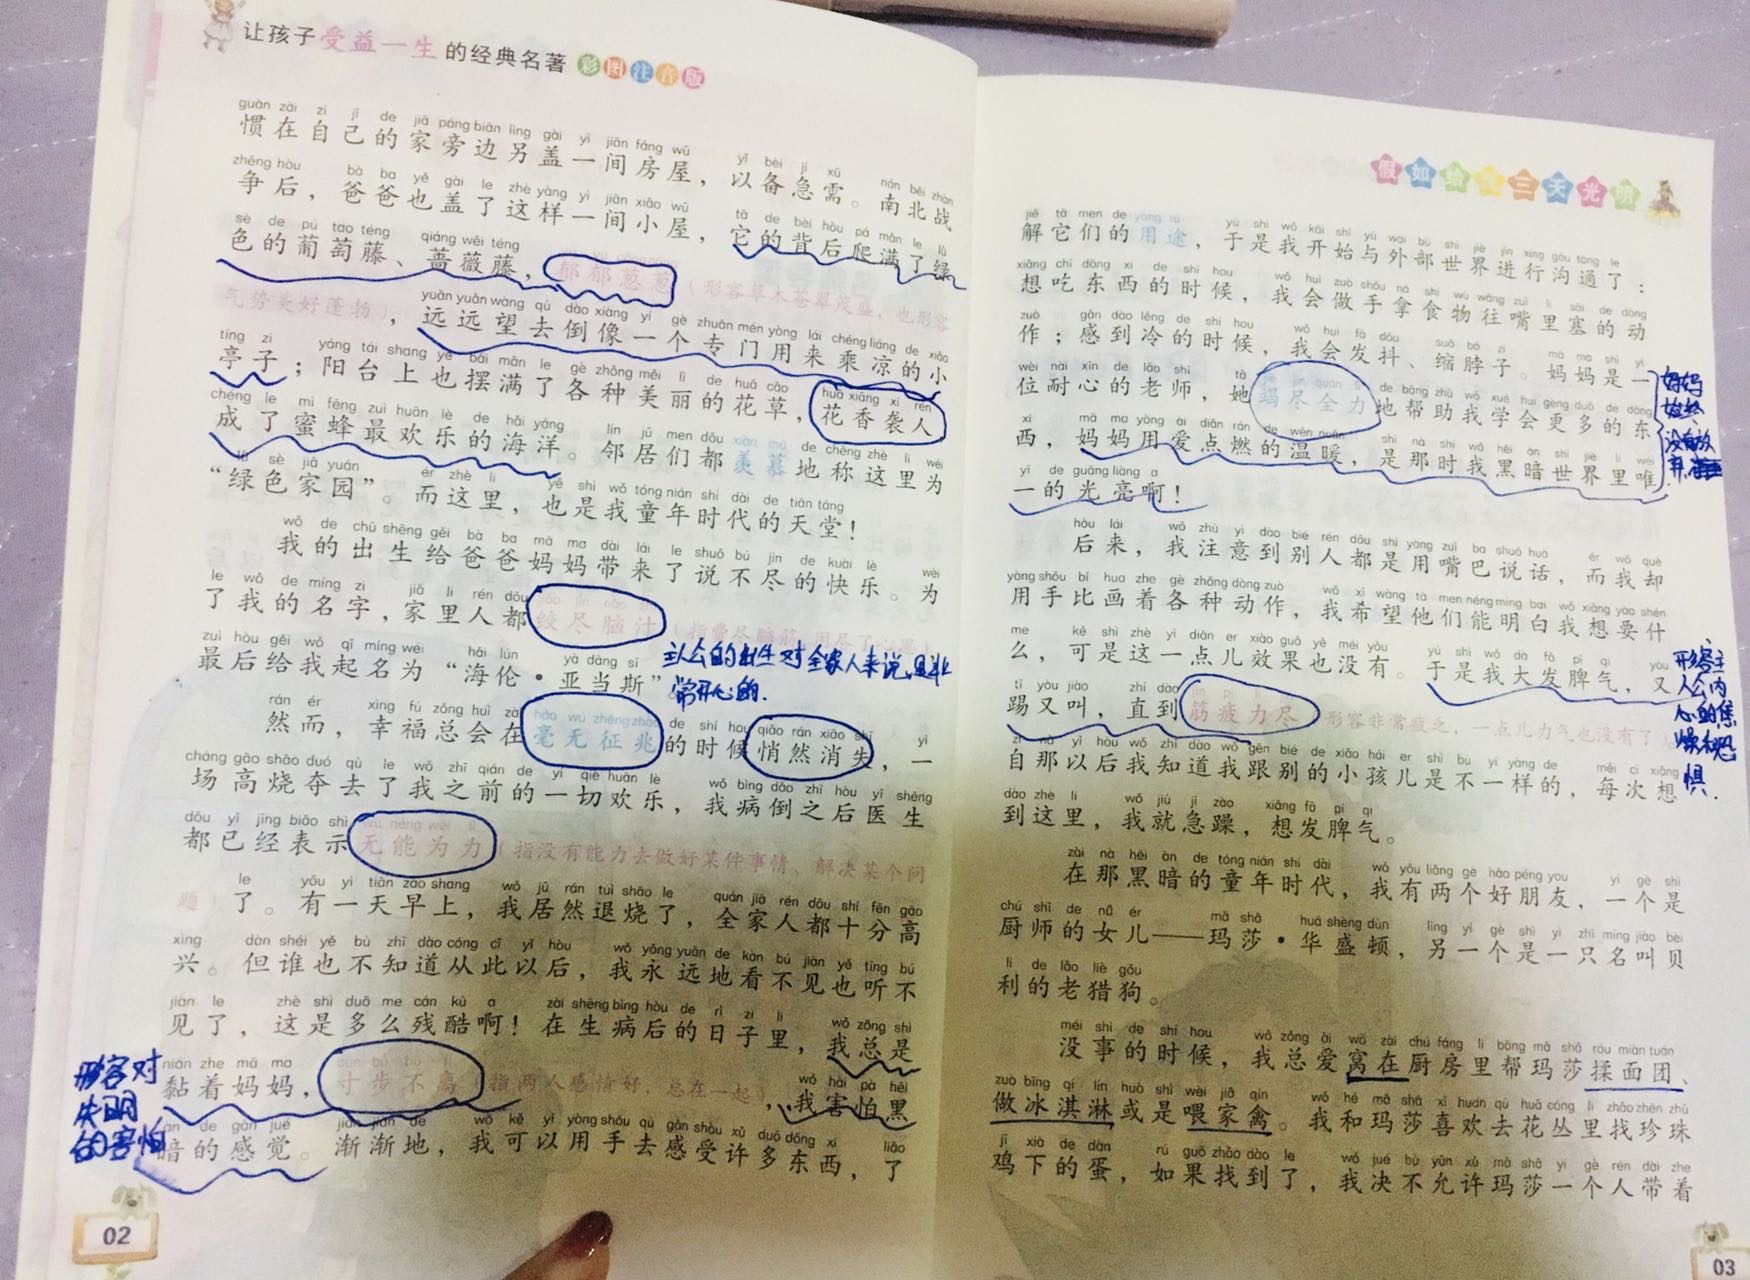 让孩子受益一生的经典名著 彩图注音版
惯在自己的家旁边另盖一间房屋，以备急需。南北战
争后，爸爸也盖了这样一间小屋，它的背后爬满了绿
色的葡萄藤、蔷薇藤，郁郁葱葱（形容草木苍翠茂盛，也形容
气势美好蓬勃），远远望去倒像一个专门用来乘凉的小
亭子；阳台上也摆满了各种美丽的花草，花香袭人
成了蜜蜂最欢乐的海洋。邻居们都羡慕地称这里为
“绿色家园”。而这里，也是我童年时代的天堂！
我的出生给爸爸妈妈带来了说不尽的快乐。为
了我的名字，家里人都绞尽脑汁（指费尽脑筋，用尽了
最后给我起名为“海伦·亚当斯”
主人公的出生对全家人来说，是非
常开心的.
然而，幸福总会在毫无征兆的时候悄然消失，一
场高烧夺去了我之前的一切欢乐，我病倒之后医生
都已经表示无能为力（指没有能力去做好某件事情、解决某个问
题）了。有一天早上，我居然退烧了，全家人都十分高
兴。但谁也不知道从此以后，我永远地看不见也听不
见了，这是多么残酷啊！在生病后的日子里，我总是
黏着妈妈，寸步不离（指两人感情好，总在一起），我害怕黑
暗的感觉。渐渐地，我可以用手去感受许多东西，了
形容对
失明
的害怕
02
假如给我三天光明
解它们的用途，于是我开始与外部世界进行沟通了：
想吃东西的时候，我会做手拿食物往嘴里塞的动
作；感到冷的时候，我会发抖、缩脖子。妈妈是一
位耐心的老师，她竭尽全力地帮助我学会更多的东
西，妈妈用爱点燃的温暖，是那时我黑暗世界里唯
一的光亮啊！
妈妈
始终
没有放
弃
后来，我注意到别人都是用嘴巴说话，而我却
用手比画着各种动作，我希望他们能明白我想要什
么，可是这一点儿效果也没有。于是我大发脾气，又
踢又叫，直到筋疲力尽（形容非常疲乏，一点儿力气也没有了）
自那以后我知道我跟别的小孩儿是不一样的，每次想
到这里，我就急躁，想发脾气。
形容主
人公内
心的焦
燥和恐
惧.
在那黑暗的童年时代，我有两个好朋友，一个是
厨师的女儿——玛莎·华盛顿，另一个是一只名叫贝
利的老猎狗。
没事的时候，我总爱窝在厨房里帮玛莎揉面团、
做冰淇淋或是喂家禽。我和玛莎喜欢去花丛里找珍珠
鸡下的蛋，如果找到了，我决不允许玛莎一个人带着
03